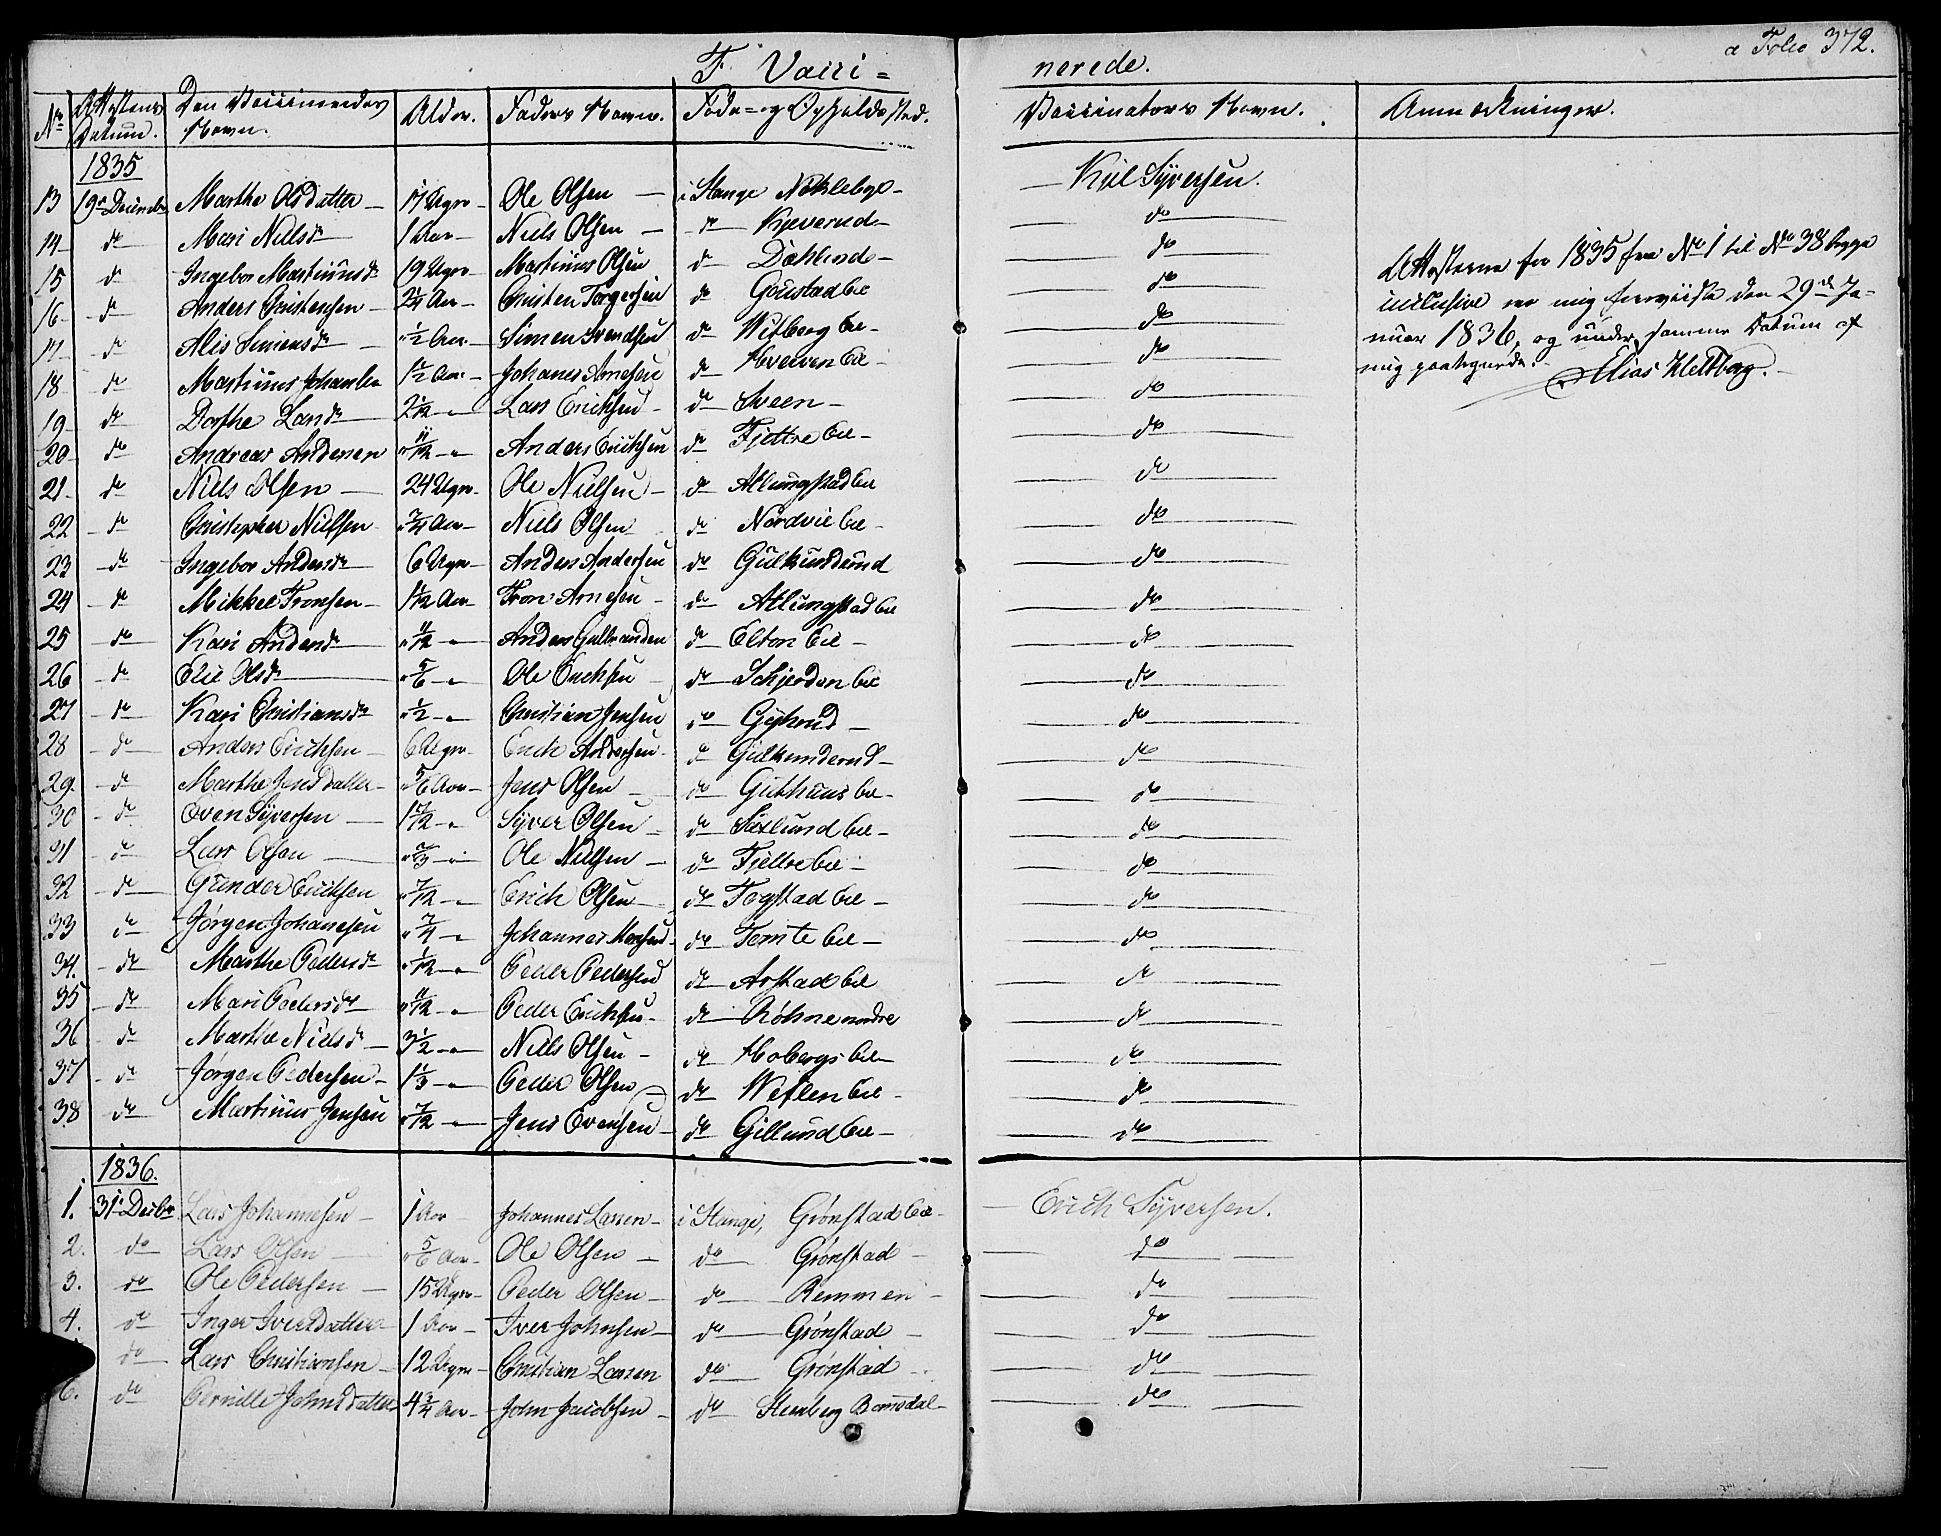 a Folio 372.
F. Vacci= nerede.
No Attestens Datum. Den Vaccineredes Navn. Alder. Faders Navn. Føde- og Opholds Sted. Vaccinators Navn. Anmærkninger.
1835
13 19de Decembr Marthe Olsdatter 17 Uger Ole Olsen i Stange Nøkleby Kiil Syversen.
14 do Mari Nielsdr 1 Aar Niels Olsen do Kjeverud do
15 do Ingebor Martinusdr 19 Uger Martinus Olsen do Dæhlin do
16 do Anders Christensen 2/4 Aar Christen Torgersen do Gonstad Eie do
17 do Alis Simensdr 1/2 Aar Simen Svendsen do Witberg Eie do
18 do Martinus Johansen 1 1/2 Aar Johanes Arnesen do Hverven Eie do
19 do Dorthe Larsdr 2 1/12 Lars Erichsen do Sveen do
20 do Andreas Andersen 11/12 Anders Erichsen do Fjetre Eie do
21 do Niels Olsen 24 Uger Ole Nielsen do Atlungstad Eie do
22 do Christopher Nielsen 3/4 Aar Niels Olsen do Nordvie Eie do
23 do Ingebor Andersdr 6 Uger Anders Andersen do Gulkunderud do
24 do Mikkel Tronsen 1 1/12 Aar Tron Arnesen do Atlungstad Eie do
25 do Kari Andersdr 11/12 Anders Gulbrandsen do Elton Eie do
26 do Elie Olsdr 5/6 Ole Erichsen do Schjerden Eie do
27 do Kari Christiansdr 1/2 Christian Jensen do Gyhrud do
28 do Anders Erichsen 6 Uger Erich Andersen do Gulkunderud do
29 do Marthe Jensdatter 5/6 Aar Jens Olsen do Guthuus Eie do
30 do Even Syversen 1 7/12 Syver Olsen do Saxlund Eie do
31 do Lars Olsen 2/3 Ole Nielsen do Fjeltre Eie do
32 do Gunder Erichsen 7/12 Erich Olsen do Fogstad Eie do
33 do Jørgen Johanesen 3/4 Johannes Monsen do Tomte Eie do
34 do Marthe Pedersdr 1/12 Peder Pedersen do Arstad Eie do
35 do Mari Pedersdr 11/12 Peder Erichsen do Røhne nordre do
36 do Marthe Nielsdr 3 1/2 Niels Olsen do Hobergs Eie do
37 do Jørgen Pedersen 1 1/3 Peder Olsen do Wetlen Eie do
38 do Martinus Jensen 7/12 Jens Evensen do Gillund Eie do
Attesterne for 1835 fra No 1 til No 38 begge
inclusive ere mig foreviiste den 29de Ja-
nuar 1836, og under samme Datum af
mig paategnede.
Elias Heltberg.
1836.
1. 31te Decbr Lars Johannesen 1 Aar Johannes Larsen i Stange, Grønstad Eie Erich Syversen.
2. do Lars Olsen 5/6 Aar Ole Olsen do Grønstad do
3. do Ole Pedersen 15 Uger Peder Olsen do Remmen do
4. do Inger Iversdatter 1 Aar Iver Johnsen do Grønstad do
do Lars Christiansen 12 Uger Christian Larsen do Grønstad do
6. do Pernille Johnsdatter 4 3/4 Aar John Jacobsen do Stenberg Romsdal do